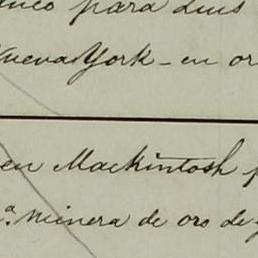 para Luis
Nueva York - en or
en Mackintosh
a. minera de oro de